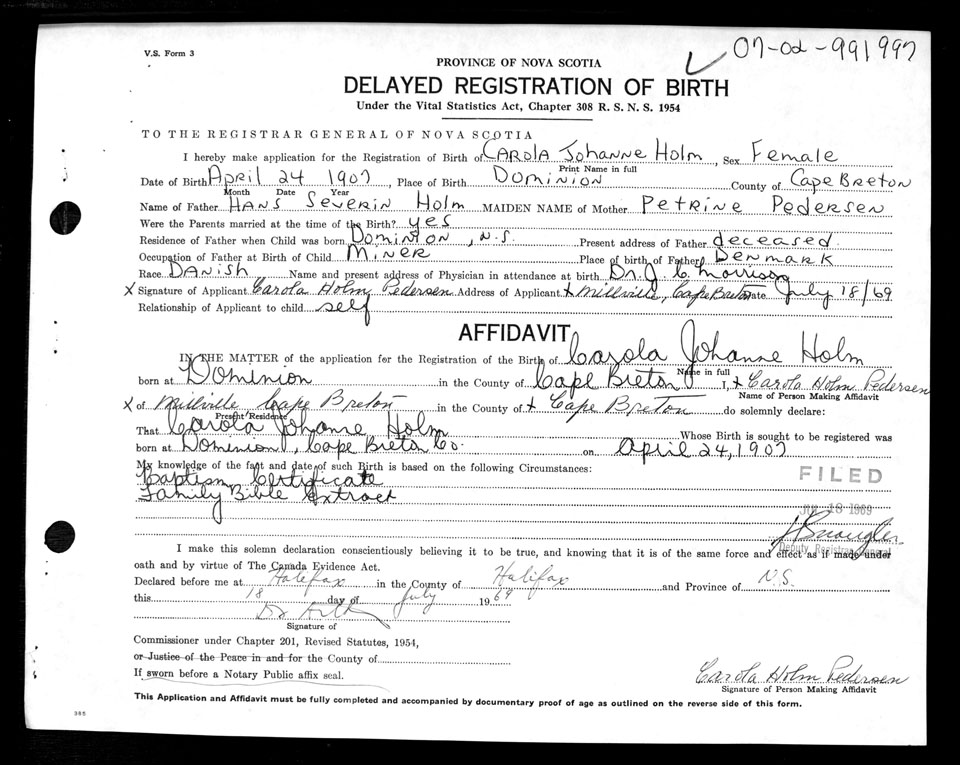 07-02-991997
V.S. Form 3
PROVINCE OF NOVA SCOTIA
DELAYED REGISTRATION OF BIRTH
Under the Vital Statistics Act, Chapter 308 R. S. N. S. 1954
TO THE REGISTRAR GENERAL OF NOVA SCOTIA
I hereby make application for the Registration of Birth of CAROLA Johanne Holm, Sex Female
Print Name in full
Date of Birth April 24 1907, Place of Birth DOMINION County of Cape BRETON
Month Date Year
Name of Father HANS SEVERIN HOLM MAIDEN NAME of Mother PETRINE PEDERSEN
Were the Parents married at the time of the Birth? yes
Residence of Father when Child was born DOMINION, N.S. Present address of Father deceased
Occupation of Father at Birth of Child MINER Place of birth of Father DENMARK
Race DANISH Name and present address of Physician in attendance at birth Dr. J. C. Morrison
X Signature of Applicant Carola Holm Pedersen Address of Applicant X Millville, Cape Breton Date July 18/69
Relationship of Applicant to child self
AFFIDAVIT
IN THE MATTER of the application for the Registration of the Birth of Carola Johanne Holm
Name in full
born at Dominion in the County of Cape Breton I, X Carola Holm Pedersen
Name of Person Making Affidavit
X of Millville Cape Breton in the County of X Cape Breton do solemnly declare:
Present Residence
That Carola Johanne Holm Whose Birth is sought to be registered was
born at Dominion, Cape Breton Co. on April 24, 1907
My knowledge of the fact and date of such Birth is based on the following Circumstances:
Baptism Certificate
Family Bible Extract
FILED
18 1969
Deputy Registrar General
I make this solemn declaration conscientiously believing it to be true, and knowing that it is of the same force and effect as if made under
oath and by virtue of The Canada Evidence Act.
Declared before me at Halifax in the County of Halifax and Province of N.S.
this 18 day of July 1969
Signature of
Commissioner under Chapter 201, Revised Statutes, 1954,
or Justice of the Peace in and for the County of
If sworn before a Notary Public affix seal.
Carola Holm Pedersen
Signature of Person Making Affidavit
This Application and Affidavit must be fully completed and accompanied by documentary proof of age as outlined on the reverse side of this form.
385